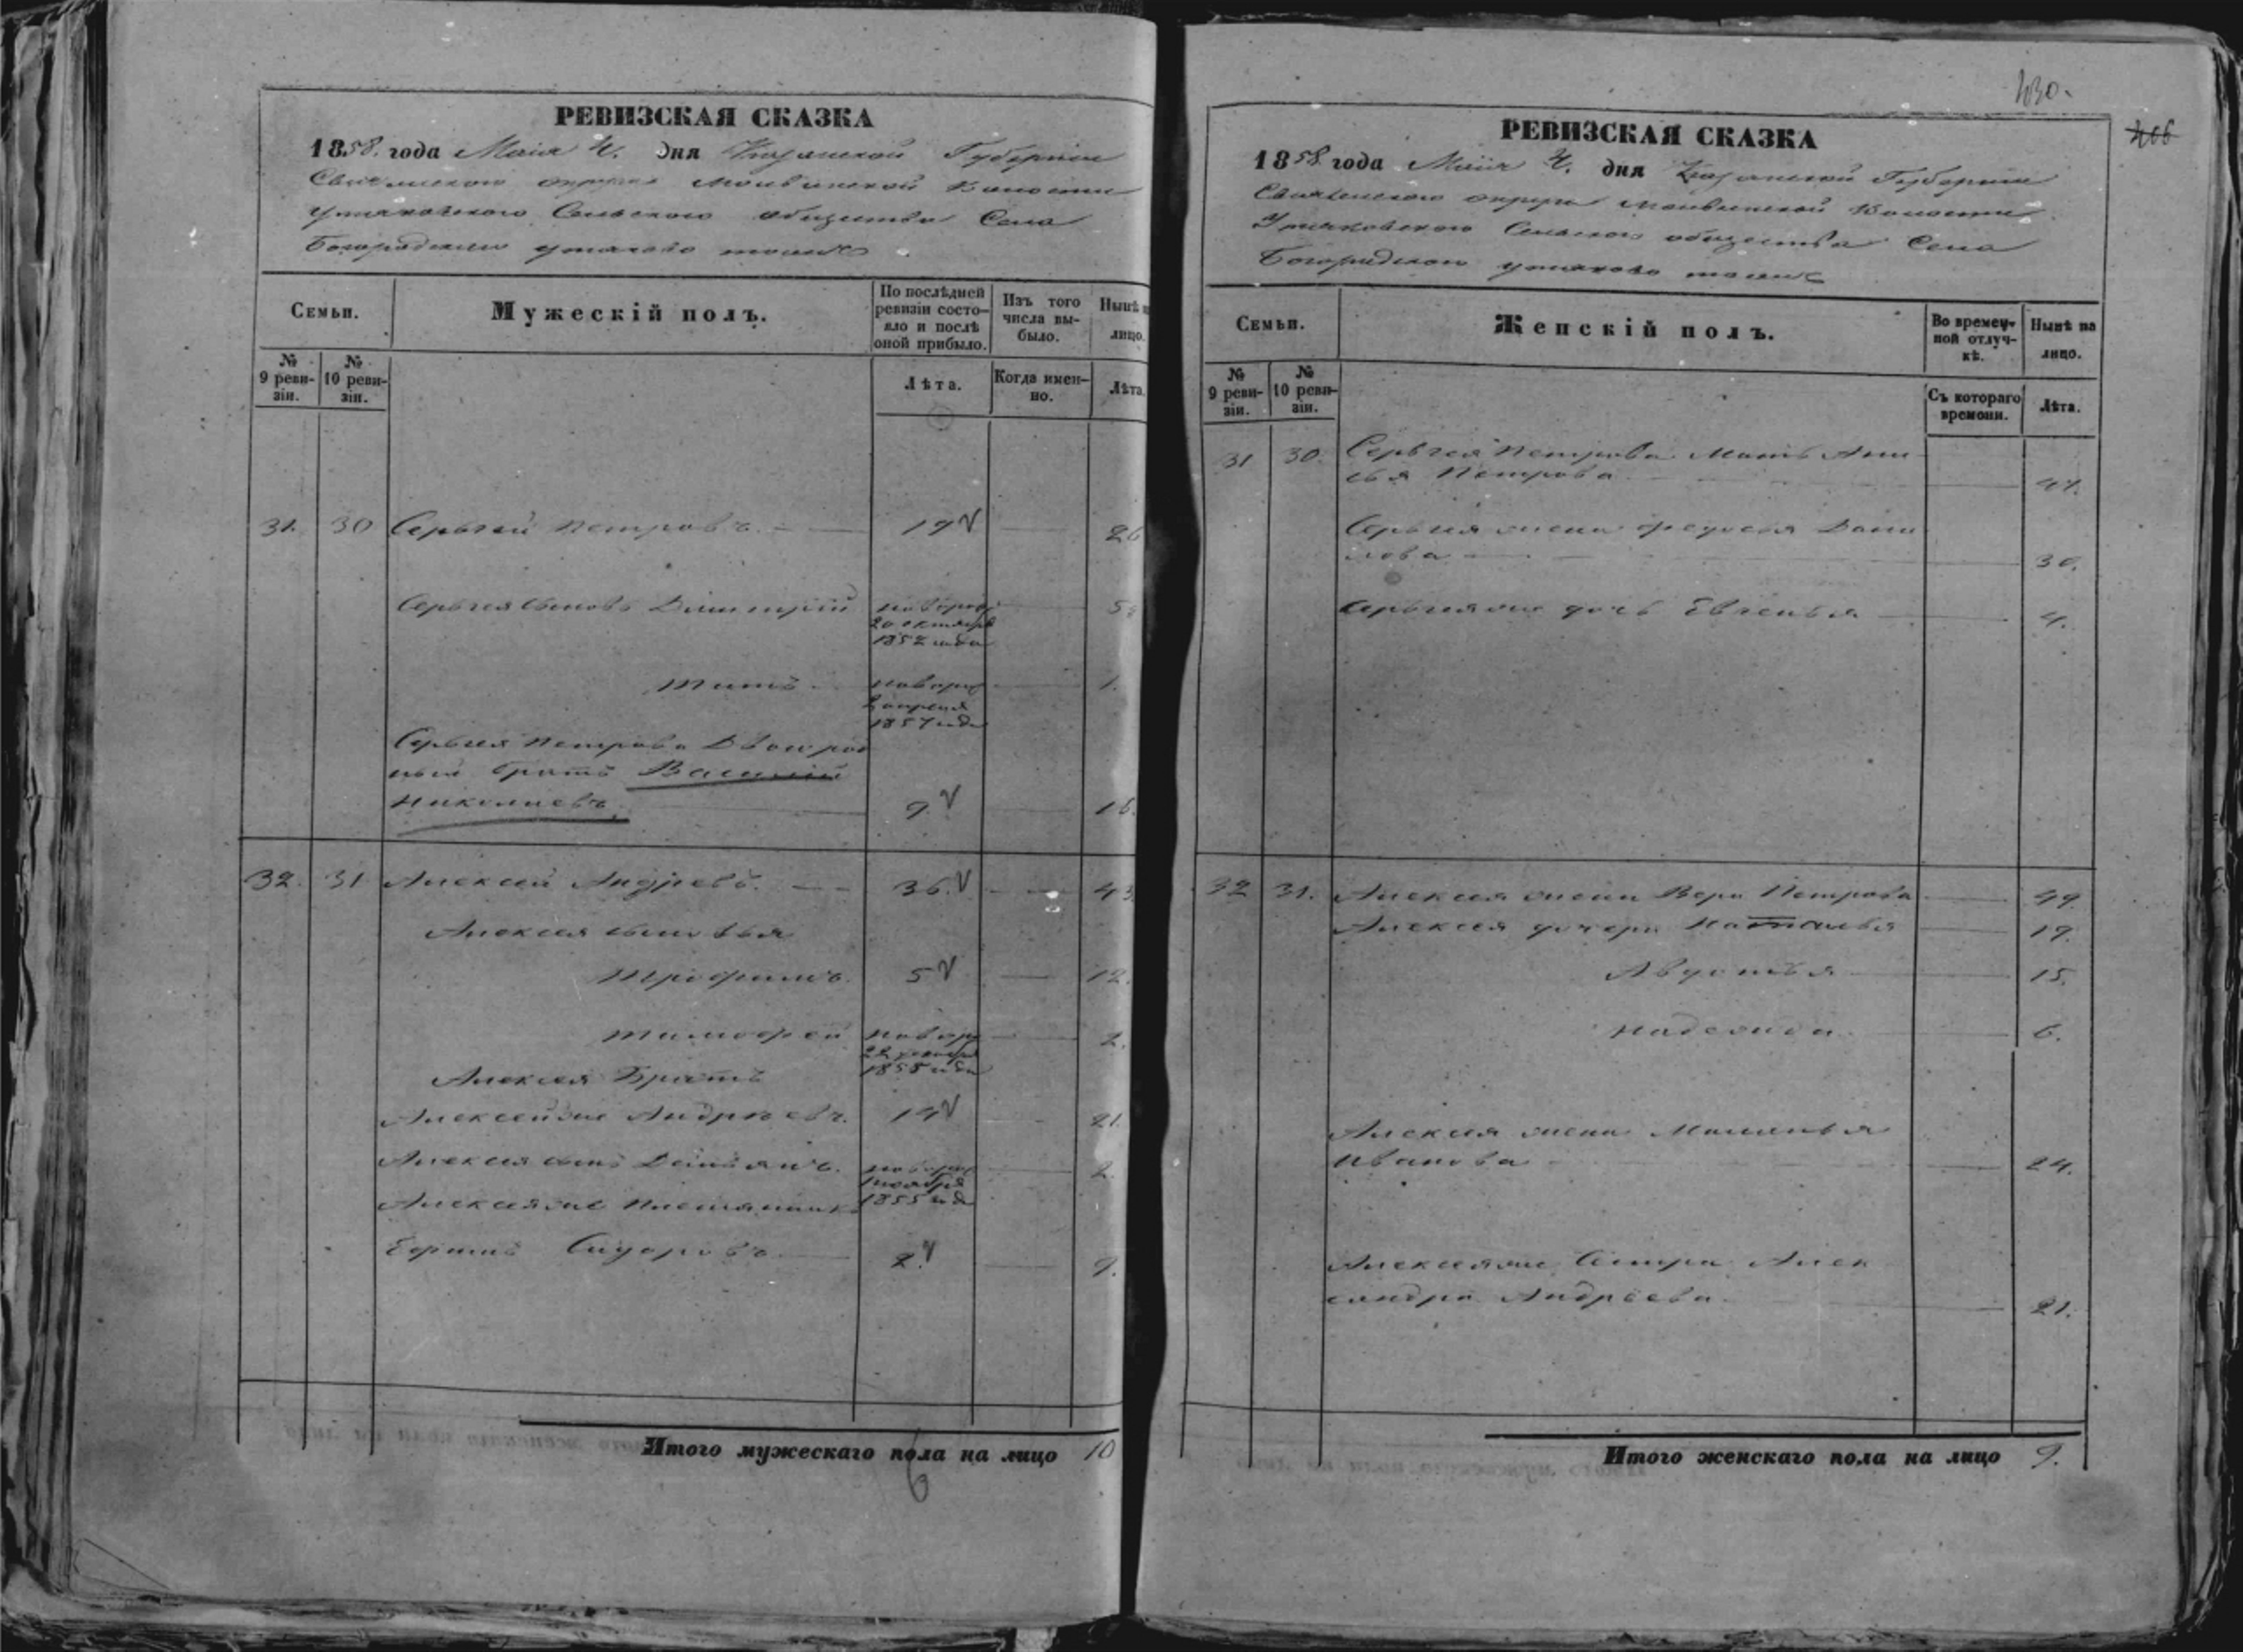 РЕВИЗСКАЯ СКАЗКА
1858. года Маія 4. дня Казанской Губерніи
округа Волости
Сельского общества Села
Богородского
Семьи.
Мужескій полъ.
По послѣдней ревизіи состо-
яло и послѣ
оной прибыло.
Изъ того
числа вы-
было.
Нынѣ на
лицо.
№
9 реви-
зіи.
№
10 реви-
зіи.
Лѣта.
Когда имен-
но.
Лѣта.
31. 30 Сергѣй Петровъ 19 26
Сергѣя сыновъ Димитрій новорож
20 октября
1852 года
Титъ новорож 1.
апреля
1857 года
Сергѣя Петрова Двоюрод
ный братъ Василій
Николаевъ 9.
32. 31 Алексей Андреевъ. 36. 43
Алексея сыновья
Трофимъ. 5 12.
Тимофей новорож 2.
22
1855 года
Алексея Братъ
Алексей же Андреевъ. 14 21.
Алексея сынъ Демьянъ. новорож 2.
ноября
Алексея же племянникъ 1855 года
Ефимъ Сидоровъ 2. 9.
Итого мужескаго пола на лицо 10
6
430.
406
РЕВИЗСКАЯ СКАЗКА
1858 года Маія 4. дня Казанской Губерніи
округа Волости
Сельского общества Села
Богородского
Семьи.
Женскій полъ.
Во времен-
ной отлуч-
кѣ.
Нынѣ на
лицо.
№
9 реви-
зіи.
№
10 реви-
зіи.
Съ котораго
времени.
Лѣта.
31 30. Сергѣя Петрова Мать
Петрова 47.
Сергѣя жена Федосья Дани
лова 30.
Сергѣя же дочь Евгенья 4.
32 31. Алексея жена Вера Петрова 49.
Алексея дочери Наталья 19.
Авдотья 15.
Надежда 6.
Алексея жена Маланья
Иванова 24.
Алексея же Сестра Алек
сандра Андреева 21.
Итого женскаго пола на лицо 9.